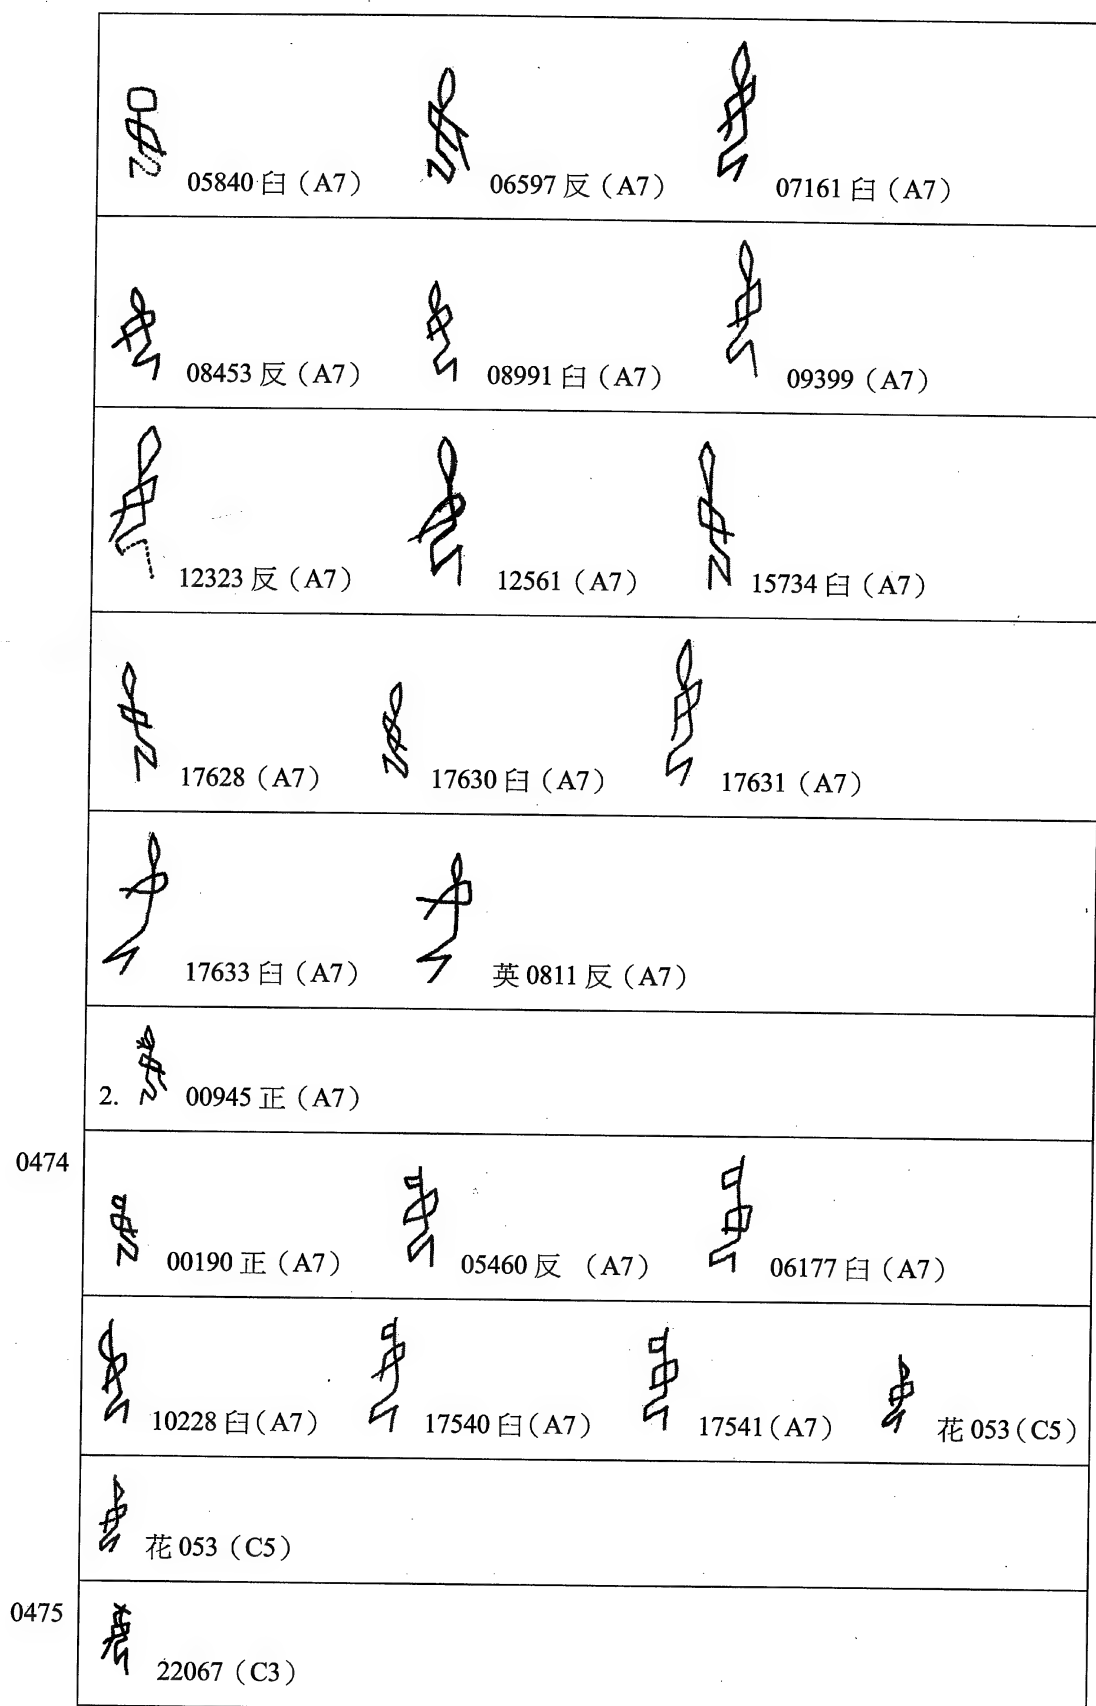 05840 臼（A7） 06597 反（A7） 07161 臼（A7）
08453 反（A7） 08991 臼（A7） 09399（A7）
12323 反（A7） 12561（A7） 15734 臼（A7）
17628（A7） 17630 臼（A7） 17631（A7）
17633 臼（A7） 英 0811 反（A7）
2. 00945 正（A7）
0474
00190 正（A7） 05460 反 （A7） 06177 臼（A7）
10228 臼（A7） 17540 臼（A7） 17541（A7） 花 053（C5）
花 053（C5）
0475
22067（C3）